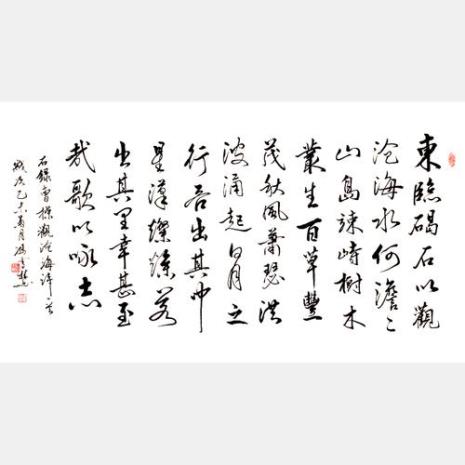 東臨碣石以觀
沧海水何澹〻
山島竦峙樹木
叢生百草豐
茂秋風蕭瑟洪
波涌起日月之
行若出其中
星漢燦爛若
出其里幸甚至
哉歌以咏志
右錄曹操觀沧海詩一首